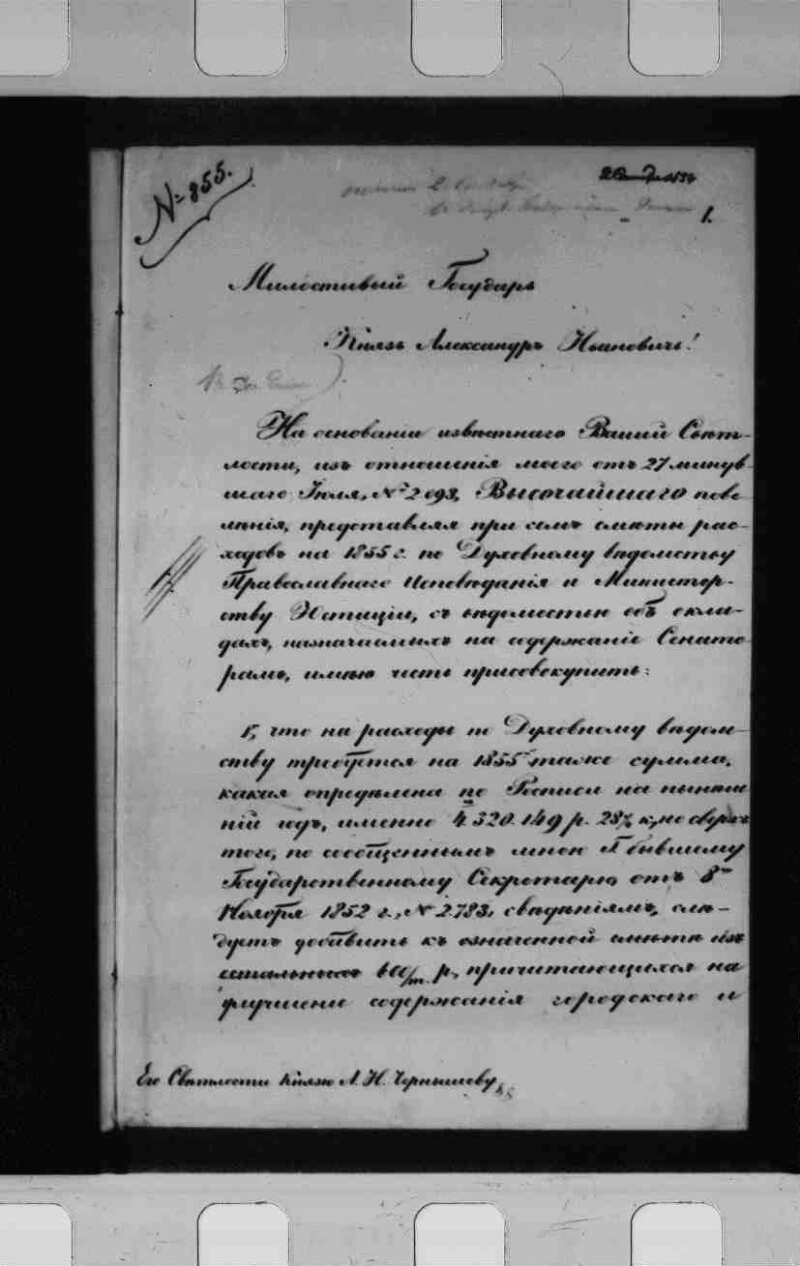 № 855.
1.
Милостивый Государь
Князь Александръ Ивановичь!
На основании извѣстнаго Вашей Свѣт-
лости, изъ отношенія моего отъ 27 минув-
шаго Іюля, № 2098, Высочайшаго пове
лѣнія, представляя при семъ смѣты рас-
ходовъ на 1855 г. по Духовному вѣдомству
Православнаго Исповѣданія и Министер-
ству Юстиціи, съ вѣдомостью объ окла-
дахъ, назначаемыхъ на содержаніе Сенато
рамъ, имѣю честь присовокупить:
1, что на расходы по Духовному вѣдом-
ству требуется на 1855 таже сумма,
какая опредѣлена по Росписи на нынѣш
ній годъ, именно 4 320 149 р. 28½ к, но сверхъ
того, по сообщеннымъ мною бывшему
Государственному Секретарю, отъ 8го
Ноября 1852 г., № 2783, свѣдѣніямъ, слѣ-
дуетъ добавить къ означенной смѣтѣ изъ
остальныхъ р, причитающихся на
улучшеніе содержанія городскаго и
Его Свѣтлости Князю А. И. Чернышеву